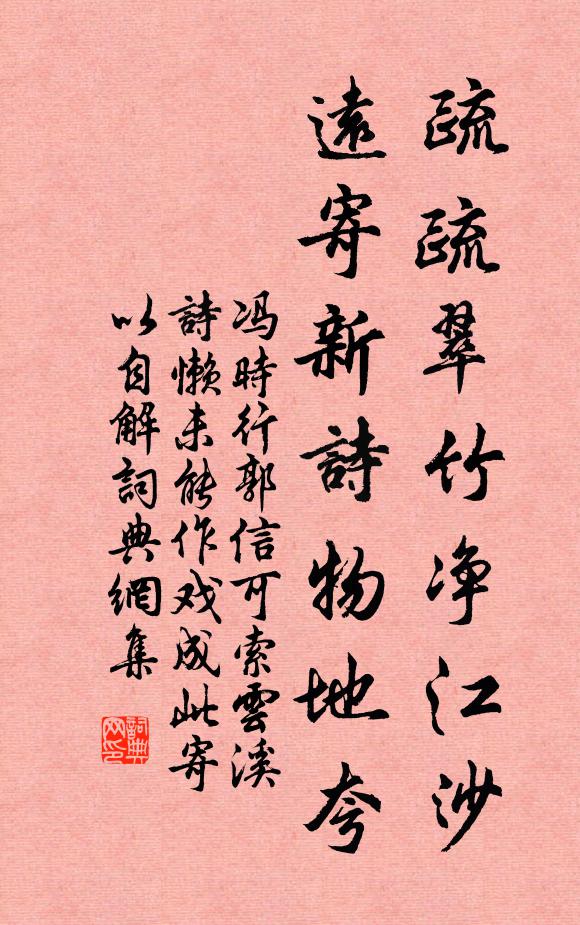 疏疏翠竹净江沙
遠寄新詩物地夸
冯時行郭信可索雲溪
詩懶未能作戏成此寄
以自解詞典網集
詞典
网印